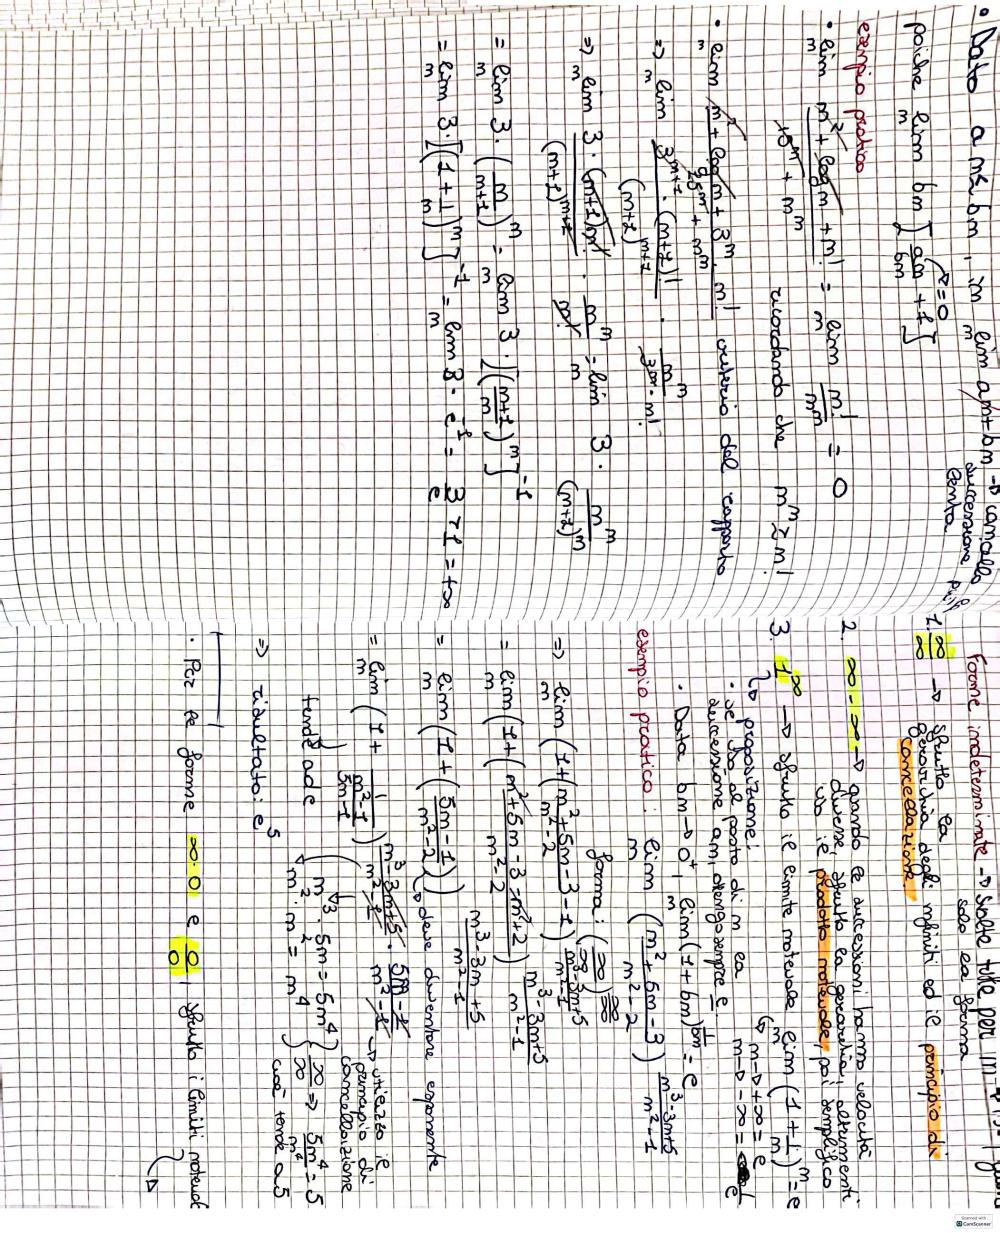 • Dato an≤bn, lim an+bn → cancello
successione più
lenta
poiché lim bn [an/bn + 1]
→=0
esempio pratico
• lim (n² + log n + n!)/(10^n + n^n) = lim n!/n^n = 0
ricordando che n^n ≥ n!
• lim (n² + log n + 3^n · n!)/(25^n + n^n) criterio del rapporto
⇒ lim (3^(n+1) · (n+1)!)/(n+1)^(n+1) · n^n/(3^n · n!)
⇒ lim (3 · (n+1)n!)/(n+1)^(n+1) · n^n/n! = lim 3 · n^n/(n+1)^n
= lim 3 · (n/(n+1))^n = lim 3 · [((n+1)/n)^n]^-1
= lim 3 · [(1 + 1/n)^n]^-1 = lim 3 · e^-1 = 3/e >1 = +∞
Forme indeterminate → svolte tutte per
solo la forma
1. ∞/∞ → sfrutto la
gerarchia degli infiniti ed il principio di
cancellazione.
2. ∞ - ∞ → quando le successioni hanno velocità
diverse, sfrutto la gerarchia, altrimenti
uso il prodotto notevole, poi semplifico
3. 1^∞ → sfrutto il limite notevole lim (1 + 1/n)^n = e
n→+∞ = e
n→-∞ = e
↳ proposizione:
• se ho al posto di n la
successione an, otengo sempre e.
• Data bn→0⁺, lim (1+bn)^(1/bn) = e
esempio pratico: lim ((n²+5n-3)/(n²-2))^((n³-3n+5)/(n²-1))
forma: (∞/∞)^(∞/∞)
⇒ lim (1+(n²+5n-3)/(n²-2) -1)^((n³-3n+5)/(n²-1))
= lim (1+(n²+5n-3-n²+2)/(n²-2))^((n³-3n+5)/(n²-1))
= lim (1+((5n-1)/(n²-2)))^((n³-3n+5)/(n²-1))
↳ deve diventare esponente
= lim (1 + 1/((n²-1)/(5n-1)))^((n²-1)/(5n-1) · (n³-3n+5)/(n²-1) · (5n-1)/(n²-1)) → utilizzo il
principio di
cancellazione
tende ad e
n³ · 5n = 5n⁴
n² · n² = n⁴ } ∞/∞ ⇒ 5n⁴/n⁴ = 5
così tende a 5
⇒ risultato: e⁵
• Per le forme ∞·0 e 0/0, sfrutto i limiti notevoli
Scanned with
CamScanner